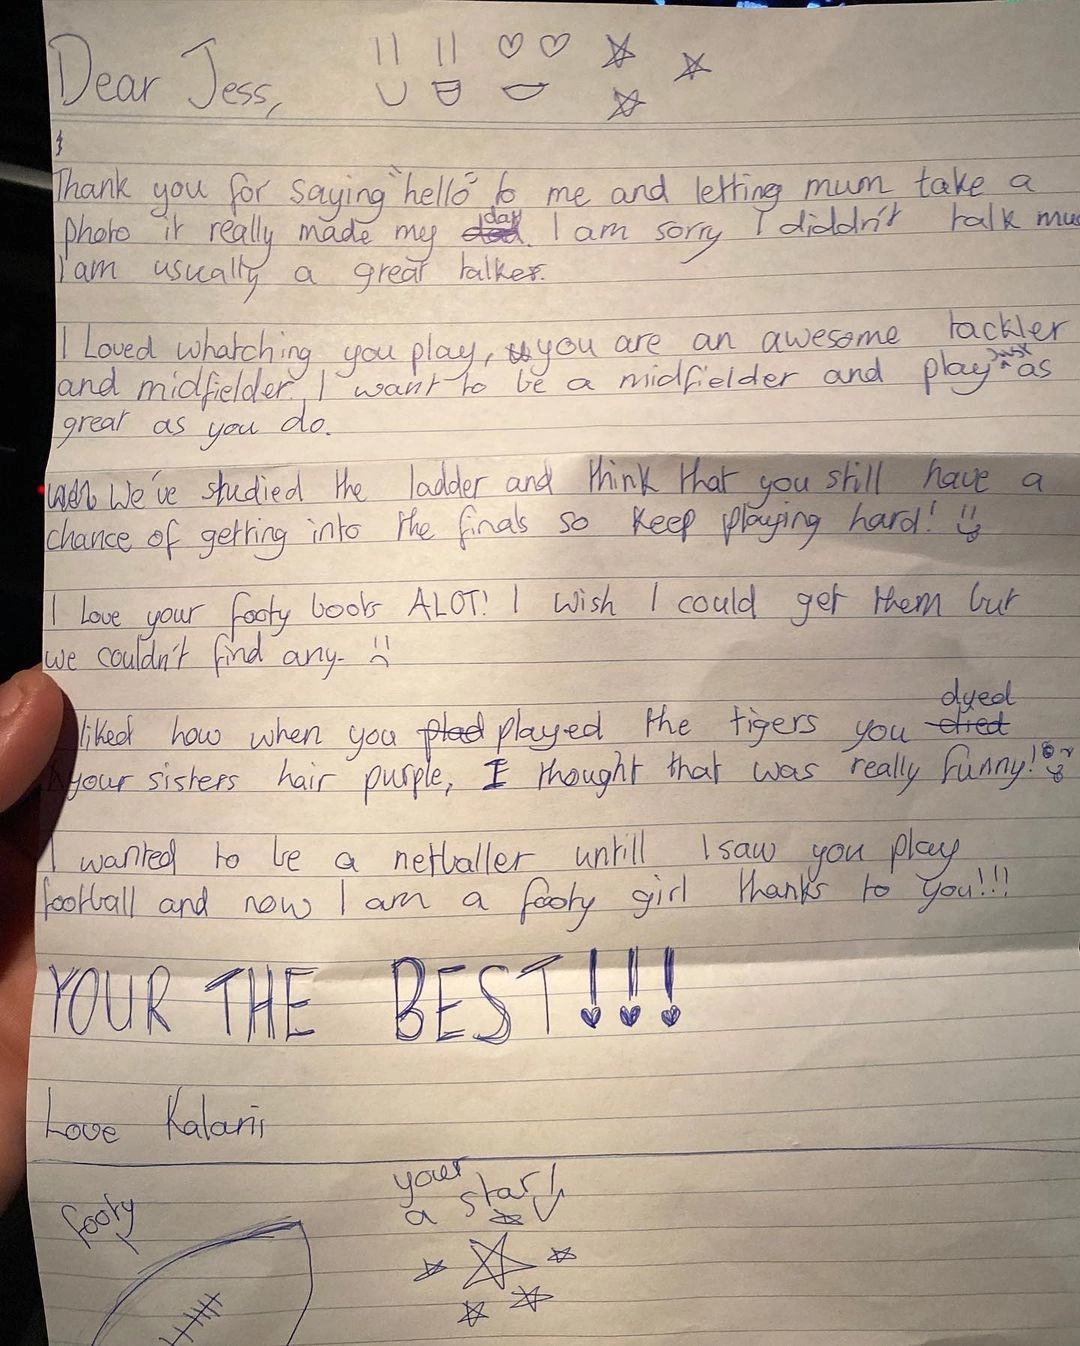 Dear Jess,
Thank you for saying "hello" to me and letting mum take a
photo it really made my day. I am sorry I diddn't talk
I am usually a great talker.
I Loved whatching you play, you are an awesome tackler
and midfielder. I want to be a midfielder and play just as
great as you do.
We've studied the ladder and think that you still have a
chance of getting into the finals so keep playing hard!
I Love your footy boots ALOT! I wish I could get them but
we couldn't find any.
liked how when you played the tigers you dyed
your sisters hair purple, I thought that was really funny!
I wanted to be a netballer untill I saw you play
football and now I am a footy girl thanks to you!!!
YOUR THE BEST!!!
Love Kalani
footy
your
a star!